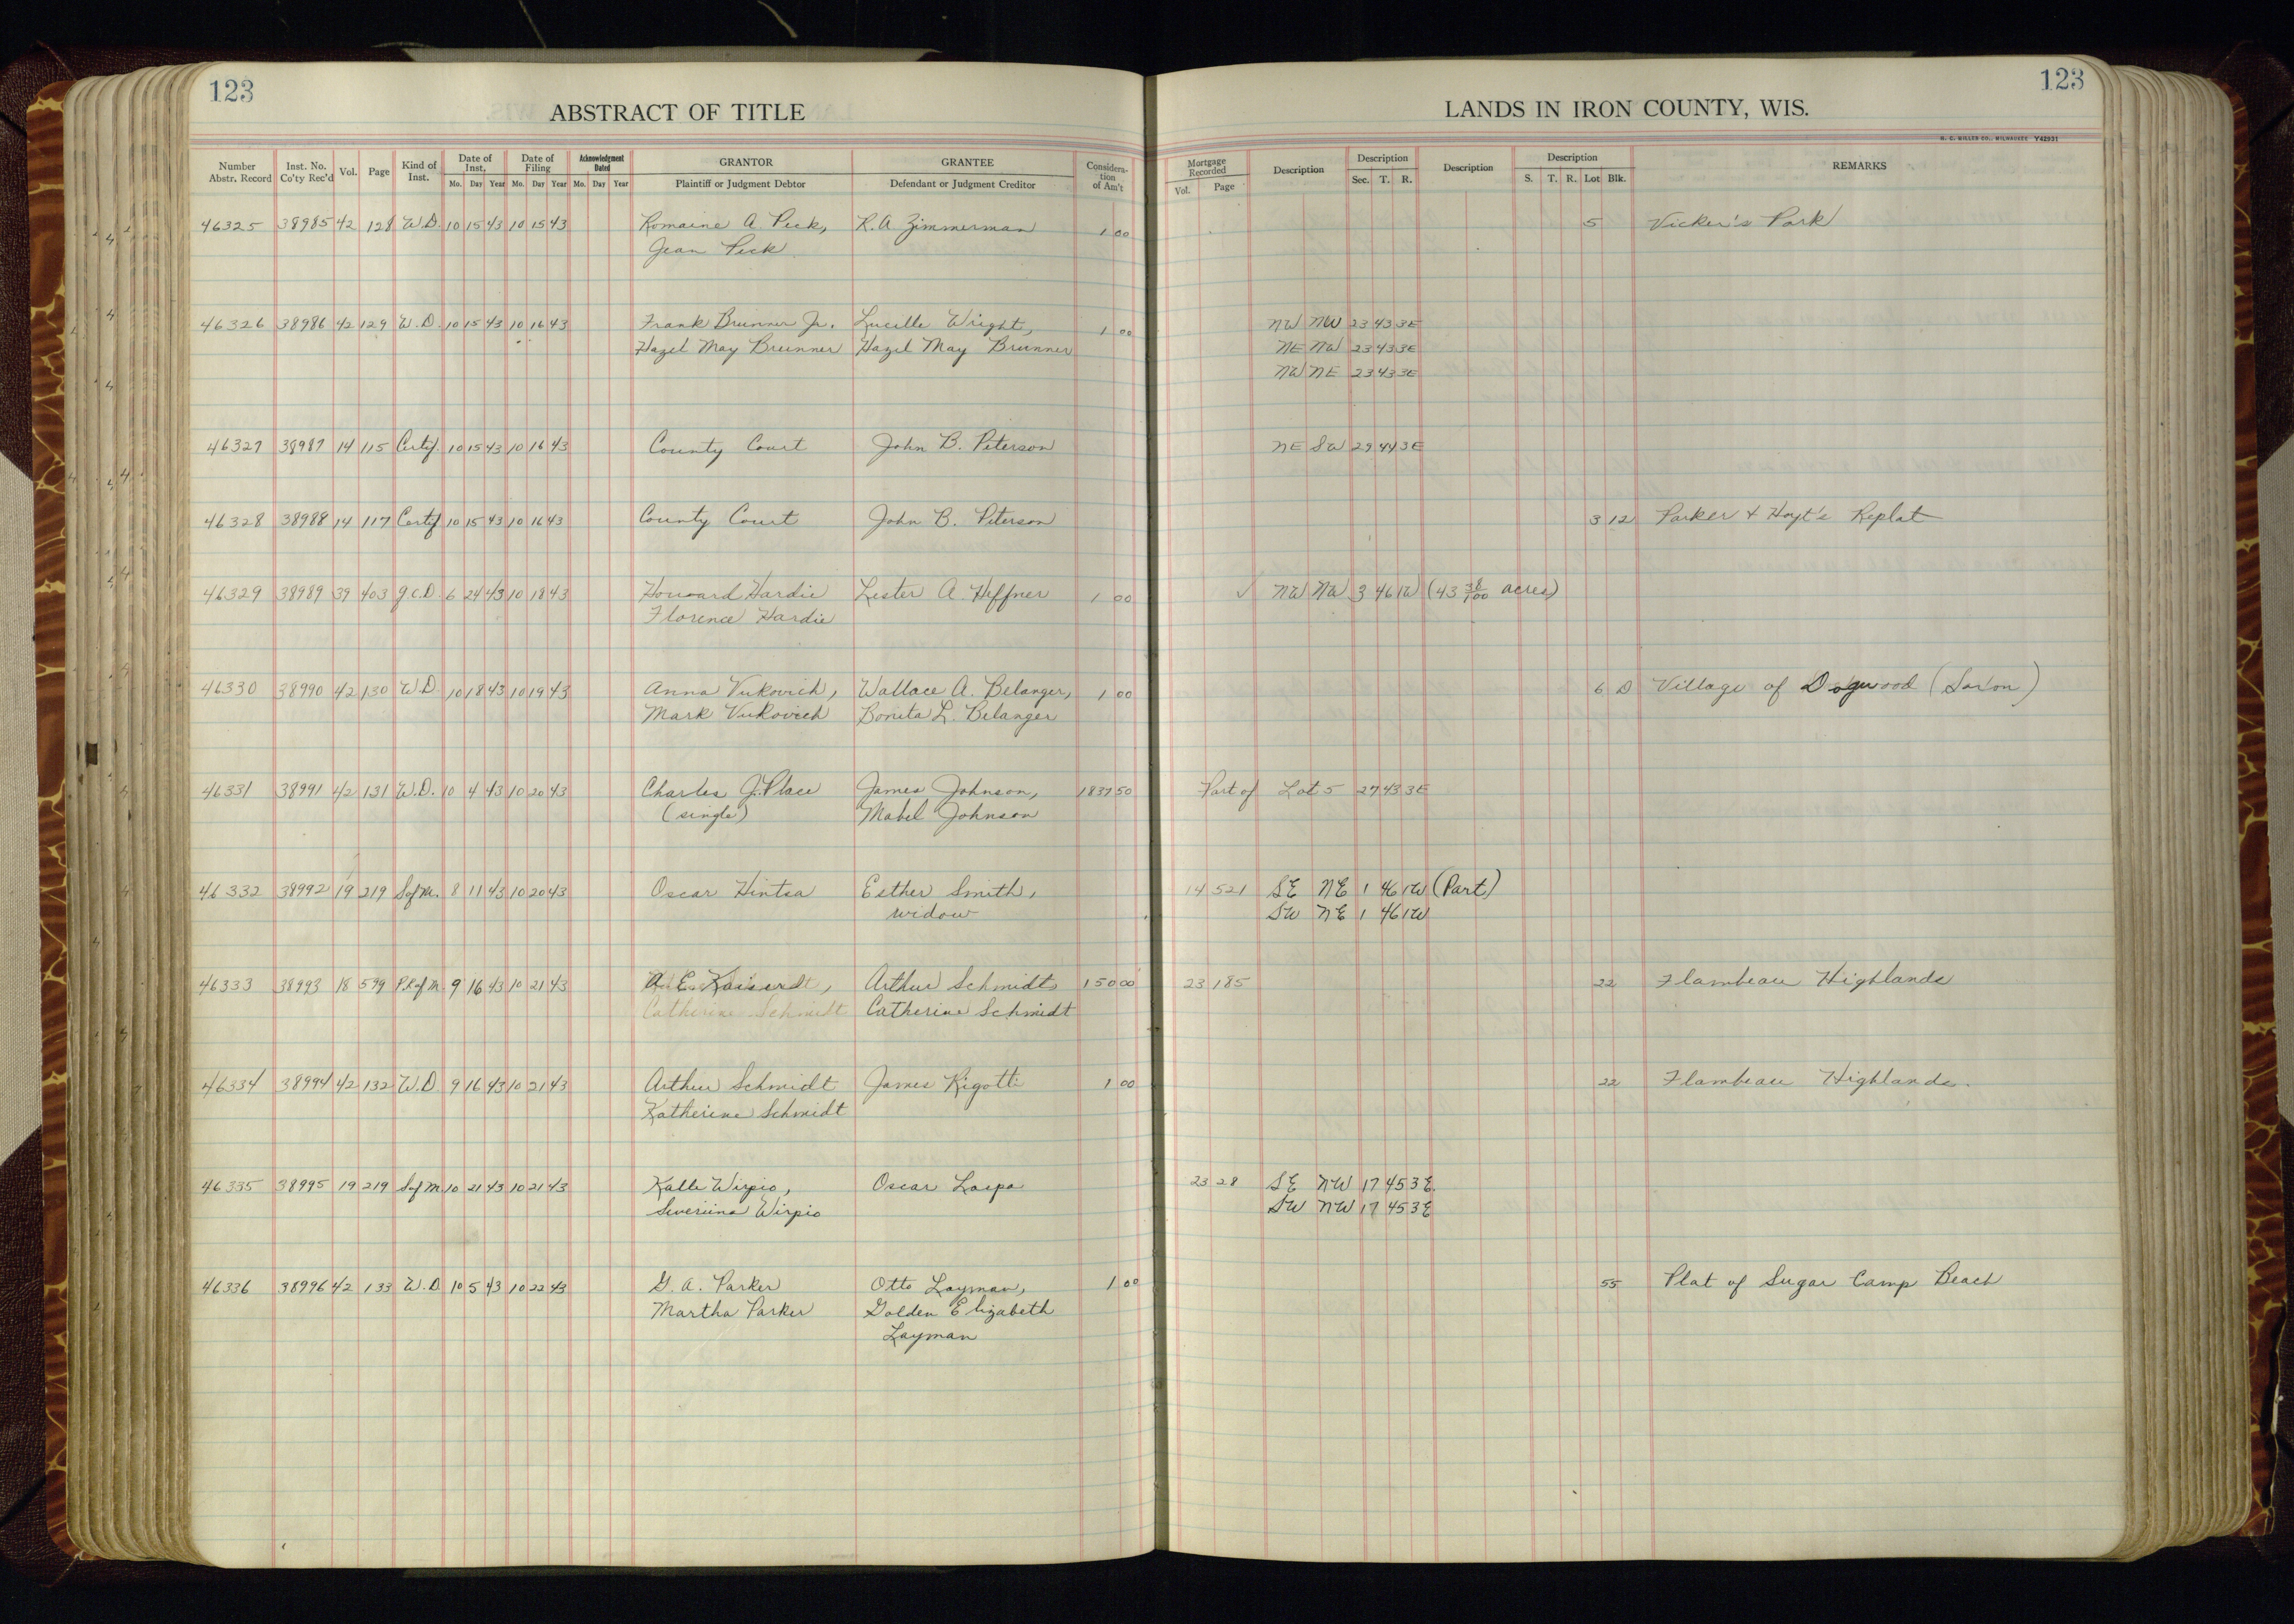 123
ABSTRACT OF TITLE
LANDS IN IRON COUNTY, WIS.
123
H. C. MILLER CO., MILWAUKEE Y42931
Number Abstr. Record Inst. No. Co'ty Rec'd Vol. Page Kind of Inst. Date of Inst. Mo. Day Year Date of Filing Mo. Day Year Acknowledgment Dated Mo. Day Year GRANTOR Plaintiff or Judgment Debtor GRANTEE Defendant or Judgment Creditor Considera-tion of Am't Mortgage Recorded Vol. Page Description Description Sec. T. R. Description Description S. T. R. Lot Blk. REMARKS
46325 38985 42 128 W.D. 10 15 43 10 15 43 Romaine A. Peck, R.A Zimmerman 1 00 5 Vicker's Park
Jean Peck
46326 38986 42 129 W.D. 10 15 43 10 16 43 Frank Brunner Jr. Lucille Wright, 1 00 NW NW 23 43 3E
Hazel May Brunner Hazel May Brunner NE NW 23 43 3E
NW NE 23 43 3E
46327 38987 14 115 Certif. 10 15 43 10 16 43 County Court John B. Peterson NE SW 29 44 3E
46328 38988 14 117 Certif 10 15 43 10 16 43 County Court John B. Peterson 3 12 Parker & Hoyt's Replat
46329 38989 39 403 Q.C.D. 6 24 43 10 18 43 Howard Hardie Lester A. Heffner 1 00 ✓ NW NW 3 46 1W (43 38/100 acres)
Florence Hardie
46330 38990 42 130 W.D 10 18 43 10 19 43 Anna Vukovich, Wallace A. Belanger, 1 00 6 D Village of Dogwood (Saxon)
Mark Vukovich Bonita L. Belanger
46331 38991 42 131 W.D. 10 4 43 10 20 43 Charles J. Place James Johnson, 1837 50 Part of Lot 5 27 43 3E
(single) Mabel Johnson
46332 38992 19 219 S of M. 8 11 43 10 20 43 Oscar Hintsa Esther Smith, 14 521 SE NE 1 46 1W (Part)
widow SW NE 1 46 1W
46333 38993 18 599 P.R of M. 9 16 43 10 21 43 A. E. Kaiser Arthur Schmidt 150 00 23 185 22 Flambeau Highlands
Catherine Schmidt Catherine Schmidt
46334 38994 42 132 W.D. 9 16 43 10 21 43 Arthur Schmidt James Rigotti 1 00 22 Flambeau Highlands.
Katherine Schmidt
46335 38995 19 219 S of M 10 21 43 10 21 43 Kalle Wirpio, Oscar 23 28 SE NW 17 45 3E.
Wirpio SW NW 17 45 3E
46336 38996 42 133 W.D. 10 5 43 10 22 43 G. A. Parker Otto Layman, 1 00 55 Plat of Sugar Camp Beach
Martha Parker Golden Elizabeth
Layman